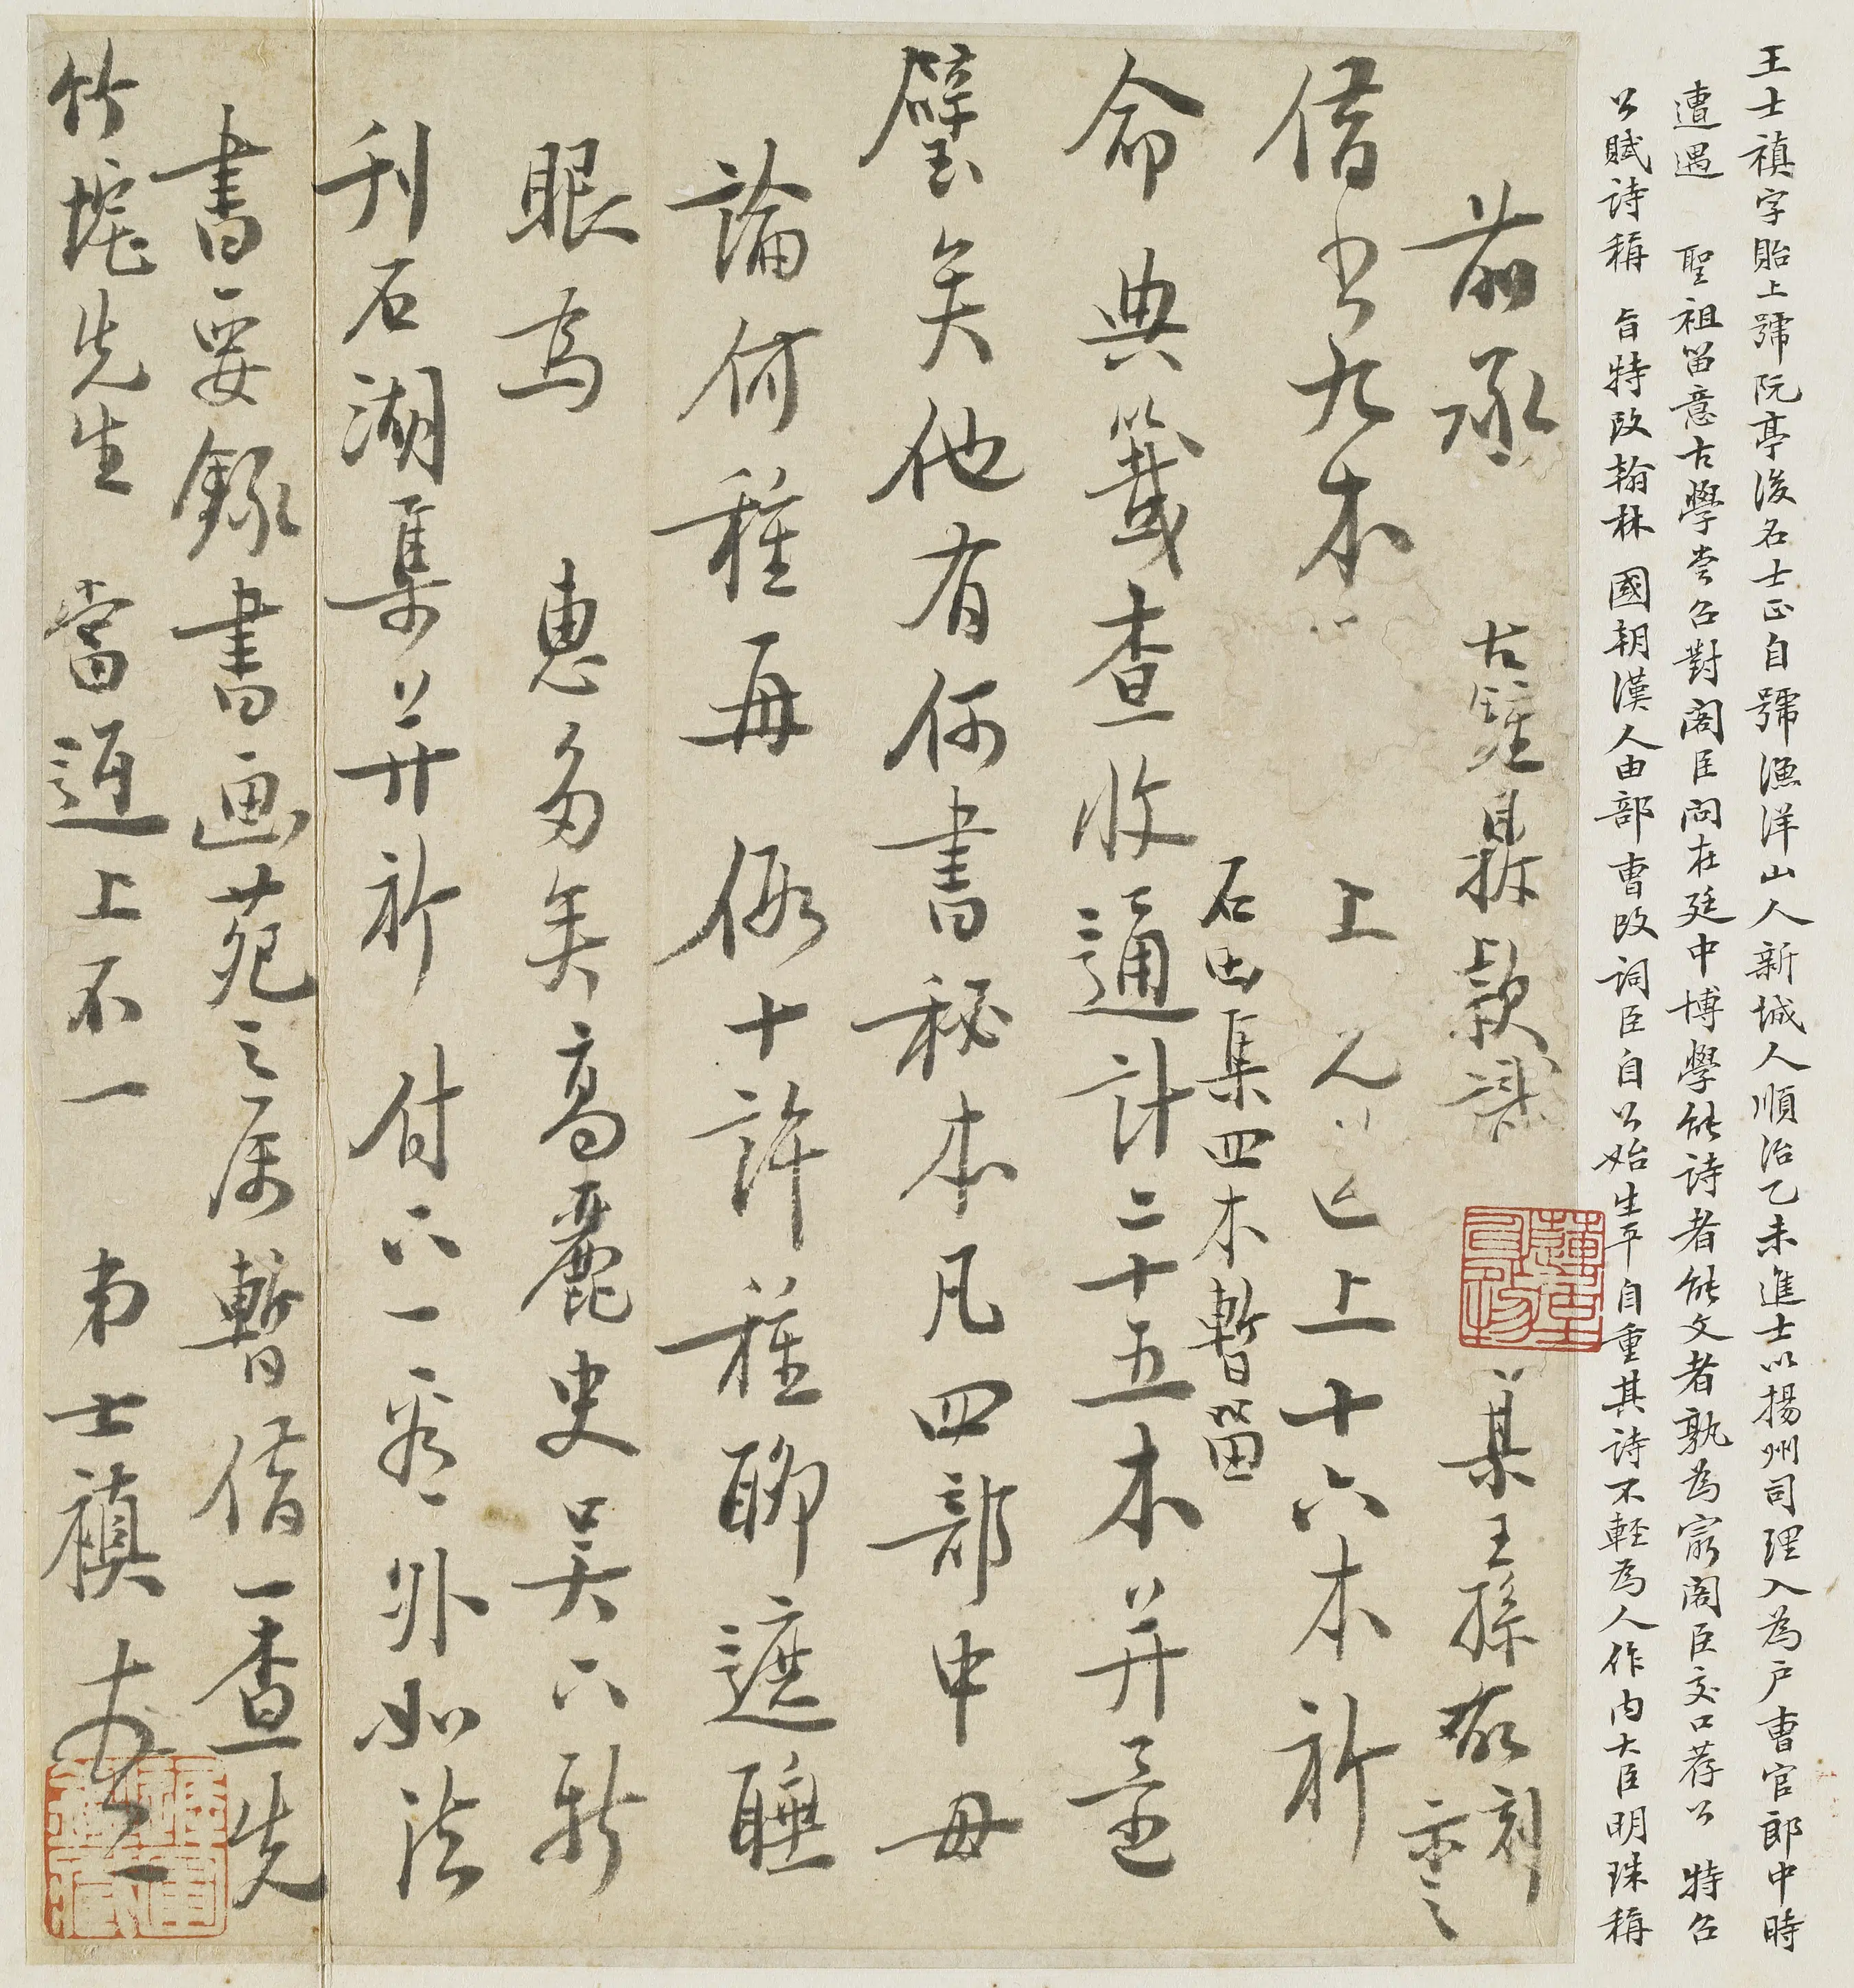 王士禛字貽上號阮亭後名士正自號漁洋山人新城人順治乙未進士以揚州司理入為户曹官郎中時
遭遇　聖祖留意古學嘗召對閣臣問在廷中博學能詩者能文者孰為最閣臣交口荐公　特召
公賦詩稱　旨特改翰林　國朝漢人由部曹改詞臣自公始生平自重其詩不輕為人作内大臣明珠稱
前承　古鐘鼎款識　某王孫敬刻
示之
借書九本　上元　上十六本祈
石田集四本暫留
命典籤查收通計二十五本并完
璧矣他有何書秘本凡四部中毋
論何種再假十許種聊遮睡
眼為　惠多矣高麗史吴六新
刊石湖集并祈　付下一看外如法
書要錄書画苑之屬暫借一查先
竹垞先生　當送上不一　弟士禛